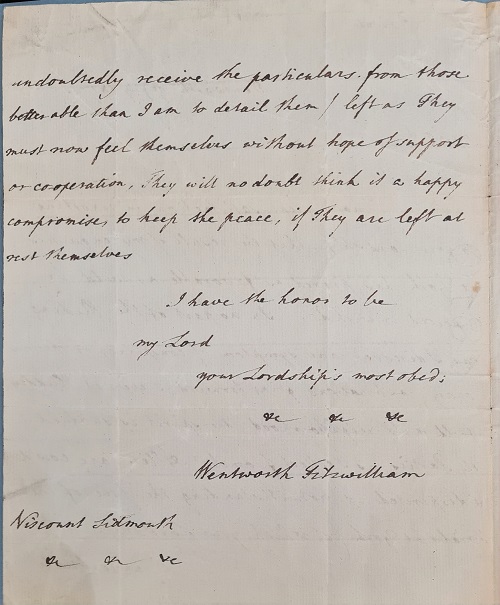 undoubtedly receive the particulars from those
better able than I am to detail them / left as They
must now feel themselves without hope of support
or cooperation, They will no doubt think it a happy
compromise, to keep the peace, if They are left at
rest themselves
I have the honor to be
my Lord
your Lordship's most obed:
&c &c &c
Wentworth Fitzwilliam
Viscount Sidmouth
&c &c &c